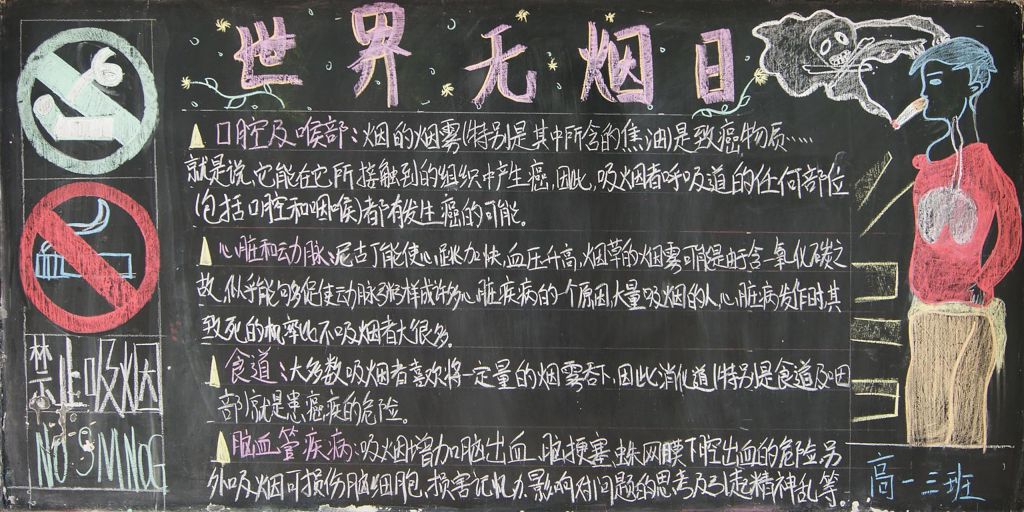 世界无烟日
口腔及喉部:烟的烟雾(特别是其中所含的焦油)是致癌物质……
就是说,它能在它所接触到的组织中产生癌,因此,吸烟者呼吸道的任何部位
(包括口腔和咽喉)都有发生癌的可能。
心脏和动脉:尼古丁能使心跳加快,血压升高,烟草的烟雾可能是由于含一氧化碳之
故,似乎能够促使动脉粥样成许多心脏疾病的一个原因,大量吸烟的人,心脏病发作时,其
致死的机率比不吸烟者大很多。
食道:大多数吸烟者喜欢将一定量的烟雾吞下,因此消化道(特别是食道及咽
部)就是患癌疾的危险。
脑血管疾病:吸烟增加脑出血、脑梗塞、蛛网膜下腔出血的危险,另
外吸烟可损伤脑细胞,损害记忆力,影响对问题的思考及引起精神乱等。
禁止吸烟
NO SMNoG
高一三班